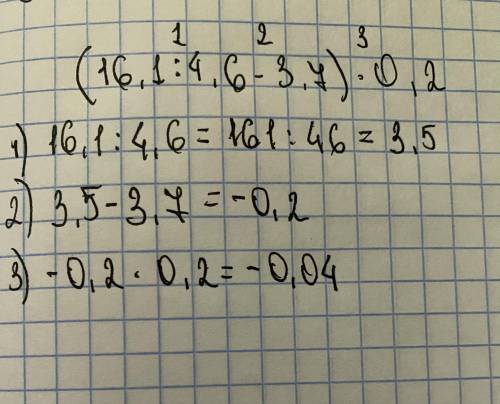 1 2 3
(16,1:4,6-3,7)·0,2
1) 16,1:4,6=161:46=3,5
2) 3,5-3,7=-0,2
3) -0,2·0,2=-0,04